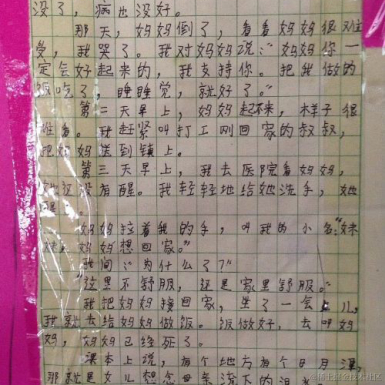 没了，病也没好。
那天，妈妈倒了，看着妈妈很难
受，我哭了。我对妈妈说：“妈妈你一
定会好起来的，我支持你。把我做的
饭吃了，睡睡觉，就好了。”
第二天早上，妈妈起不来，样子很
难看。我赶紧叫打工刚回家的叔叔，
把妈妈送到镇上。
第三天早上，我去医院看妈妈，
她还没有醒。我轻轻地给她洗手，她
妈妈拉着我的手，叫我的小名：“妹
妹，妈妈想回家。”
我问：“为什么了？”
“这里不舒服，还是家里舒服。”
我把妈妈接回家，坐了一会儿，
我就去给妈妈做饭。饭做好，去叫妈
妈，妈妈已经死了。
课本上说，有个地方有个日月潭，
那就是女儿想念母亲流下的泪水